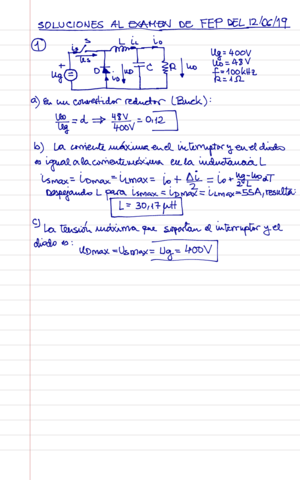 SOLUCIONES AL EXAMEN DE FEP DEL 12/06/19
1
is S L iL io
+ us
ug D iD uD C R uo
ug=400V
uo=48V
f=100kHz
R=1Ω
a) En un convertidor reductor (Buck):
uo/ug = d ⇒ 48V/400V = 0,12
b) La corriente máxima en el interruptor y en el diodo
es igual a la corriente máxima en la inductancia L
iSmax = iDmax = iLmax = io + Δi/2 = io + (ug-uo)/(2·L) dT
Despejando L para iSmax = iDmax = iLmax = 55A, resulta:
L = 30,17 μH
c) La tensión máxima que soportan el interruptor y el
diodo es:
uDmax = uSmax = ug = 400V